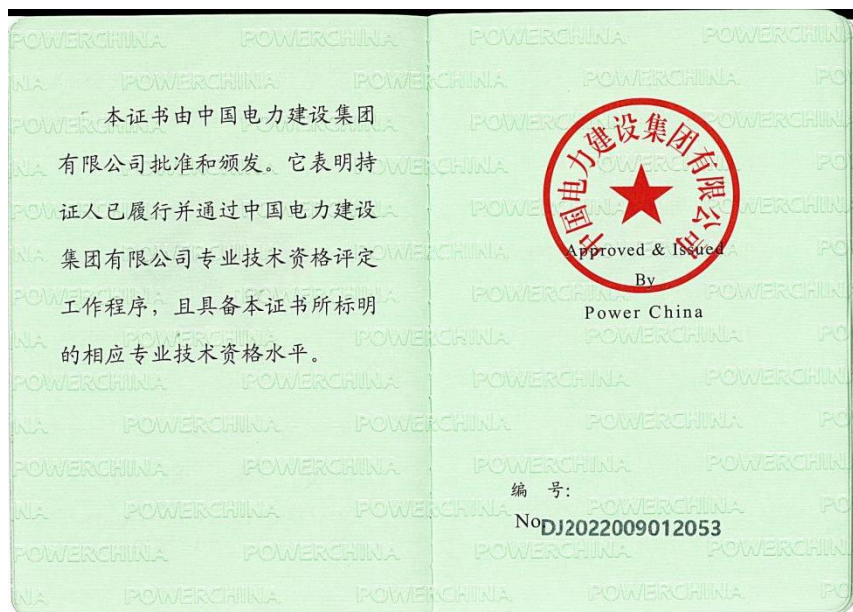 本证书由中国电力建设集团
有限公司批准和颁发。它表明持
证人已履行并通过中国电力建设
集团有限公司专业技术资格评定
工作程序，且具备本证书所标明
的相应专业技术资格水平。
中国电力建设集团有限公司
Approved & Issued
By
Power China
编 号:
No DJ2022009012053
POWERCHINA POWERCHINA POWERCHINA POWERCHINA